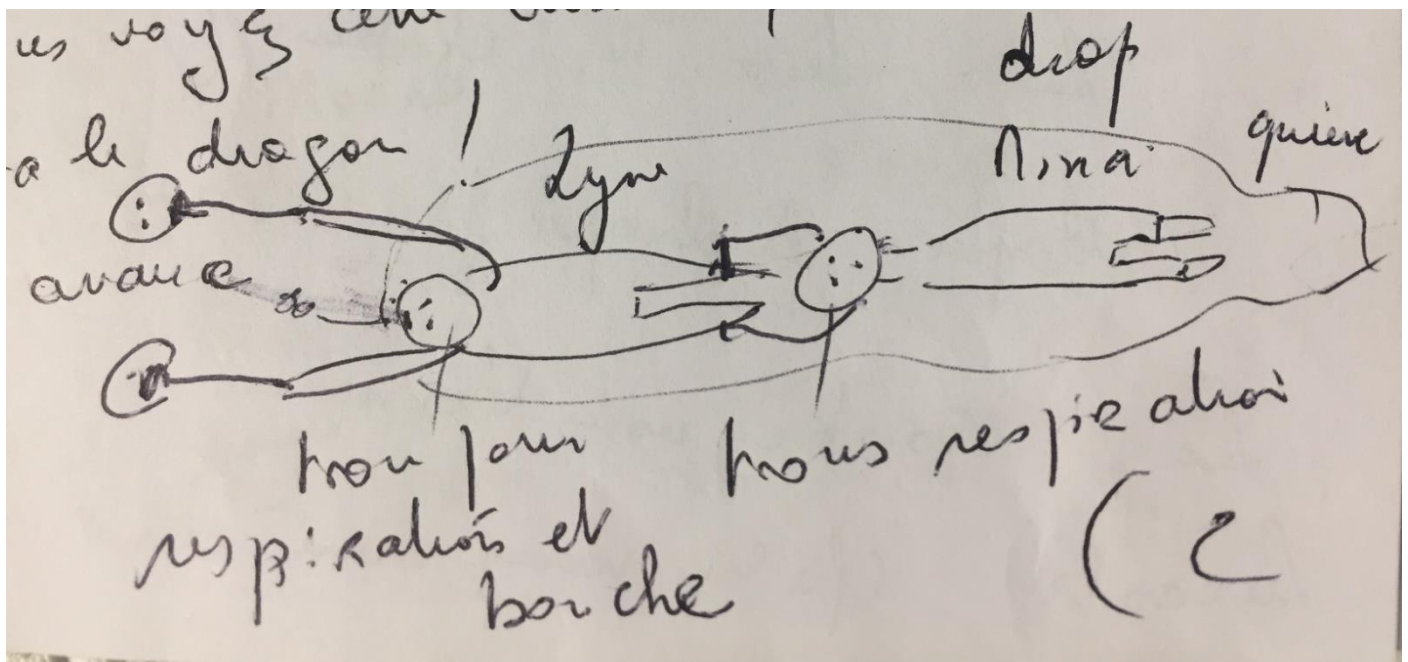 us voyez cette
drap
a le dragon !
Lyne
Nina
queue
avance
trou pour
respiration et
bouche
trous respiration
( 2